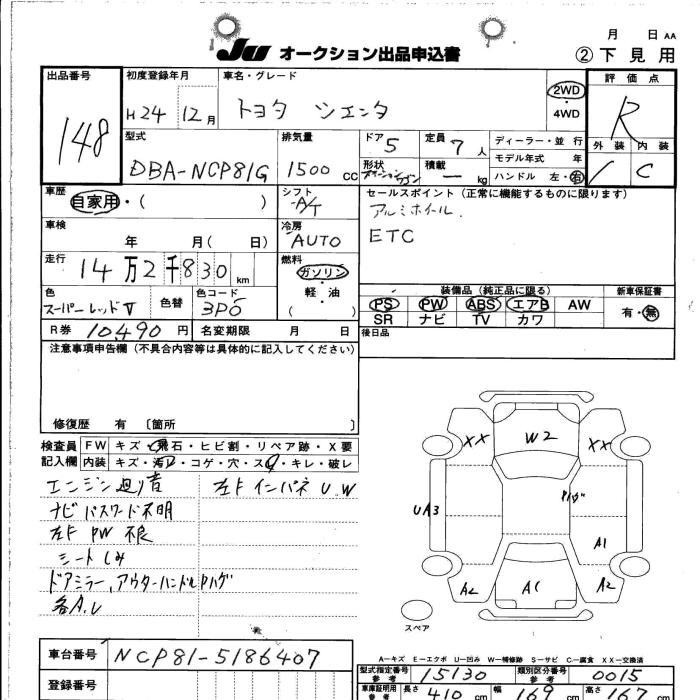 月 日 AA
JU オークション出品申込書 ② 下見用
出品番号 初度登録年月 車名・グレード 2WD・4WD 評価点
148 H24 12月 トヨタ シエンタ R
型式 排気量 ドア 5 定員 7人 ディーラー・並行 外装 内装
DBA-NCP81G 1500cc 形状 積載 ー kg モデル年式 年 C
ハンドル 左・右
車歴 自家用・( ) シフト A/T セールスポイント(正常に機能するものに限ります)
車検 年 月( 日) 冷房 AUTO アルミホイール
走行 14万2千830km 燃料 ガソリン・軽・油 ( ) ETC
色 スーパーレッドV 色替 色コード 3P0 装備品(純正品に限る) 新車保証書
PS PW ABS エアB AW 有・無
SR ナビ TV カワ
R券 10490円 名変期限 月 日 後日品
注意事項申告欄(不具合内容等は具体的に記入してください)
修復歴 有 〔箇所 〕
検査員 FW キズ・飛石・ヒビ割・リペア跡・X要
記入欄 内装 キズ・汚レ・コゲ・穴・スレ・キレ・破レ
エンジン廻り音 左F インパネ U.W
ナビパスワード不明
左F PW 不良
シートしみ
ドアミラー、アウターハンドルPハゲ
各A.U
XX W2 XX
UA3 Pハゲ
A1
A2 AC A2
スペア
A−キズ E−エクボ U−凹み W−補修跡 S−サビ C−腐食 XX−交換済
車台番号 NCP81-5186407 型式指定番号 参考 15130 類別区分番号 参考 0015
登録番号 車庫証明用 参考 長さ 410cm 幅 169cm 高さ 167cm